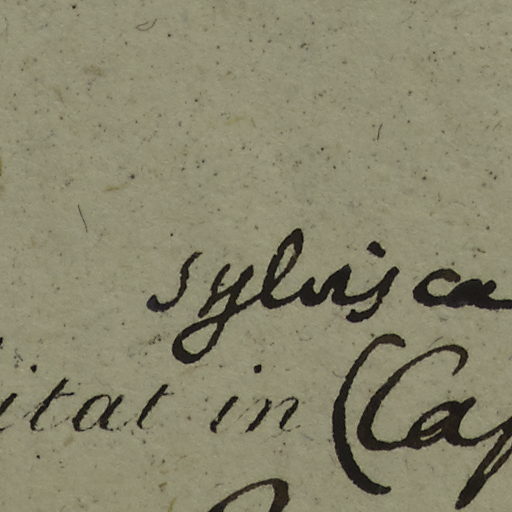 sylvis ca
itat in (Cap